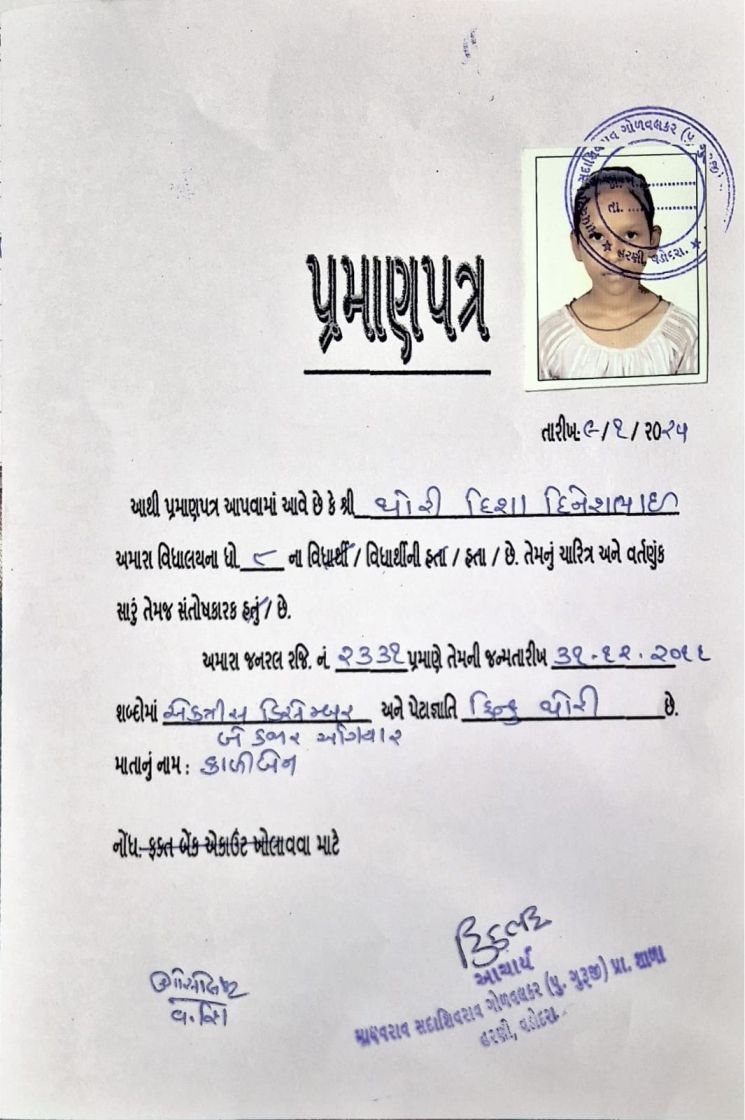 માધવરાવ સદાશિવરાવ ગોળવલકર (પુ. ગુરૂજી)
તા. ..............
★ હરણી, વડોદરા. ★
પ્રમાણપત્ર
તારીખઃ ૯/૧/૨૦૨૫
આથી પ્રમાણપત્ર આપવામાં આવે છે કે શ્રી થોરી દિશા દિનેશભાઇ
અમારા વિદ્યાલયના ધો. ૮ ના વિદ્યાર્થી / વિદ્યાર્થીની હતા / હતા / છે. તેમનું ચારિત્ર અને વર્તણુંક
સારું તેમજ સંતોષકારક હતું / છે.
અમારા જનરલ રજિ. નં. ૨૩૩૧ પ્રમાણે તેમની જન્મતારીખ ૩૧-૧૨-૨૦૧૧
શબ્દોમાં એકત્રીસ ડિસેમ્બર અને પેટાજ્ઞાતિ હિન્દુ થોરી છે.
બે હજાર અગિયાર
માતાનું નામ : કાળીબેન
નોંધઃ ફક્ત બેંક એકાઉંટ ખોલાવવા માટે
વ.શિ
આચાર્ય
માધવરાવ સદાશિવરાવ ગોળવલકર (પુ. ગુરૂજી) પ્રા. શાળા
હરણી, વડોદરા.